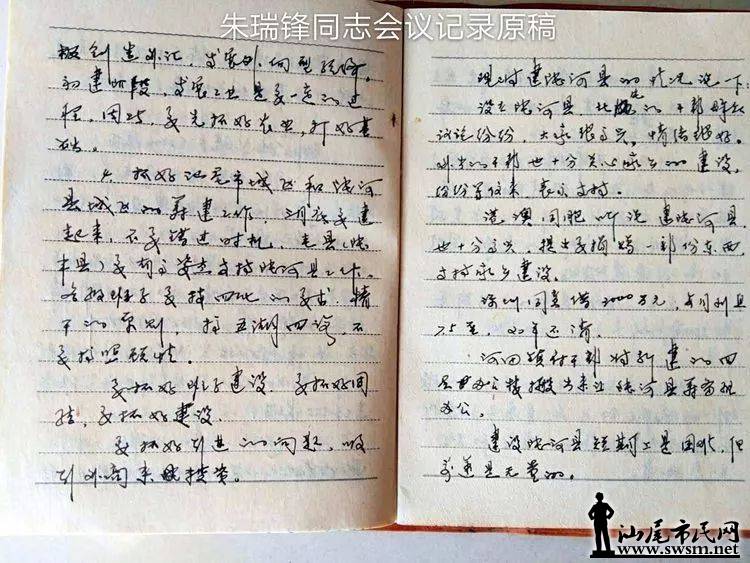 朱瑞锋同志会议记录原稿
极创造外汇，发展外向型经济。
初建阶段，发展工业是要一定的过
程，因此，要先抓好农业，打好基
础。
4、抓好汕尾市城区和陆河
县城区的筹建工作，
起来，不要错过时机，老县（陆
丰县）要有支持陆河县工作。
各级班子要按四化的要求，精
干的原则，搞五湖四海，不
要搞照顾情。
要抓好班子建设，要抓好团
结，要抓好建设。
要抓好引进的问题，吸
引外商来投资。
现对建陆河县的情况说一下：
设立陆河县，干部群众
议论纷纷，大家很高兴，情绪很好。
外出的干部也十分关心家乡的建设，
纷纷写信来表示支持。
港澳同胞听说建陆河县，
也十分高兴，提出要捐赠一部份东西
支持家乡建设。
深圳同意借2000万元，每月利息
7.5厘，还清。
河田镇干部将新建的四
层办公楼搬出来让陆河县筹备组
办公。
建设陆河县短期工是困难，但
前途是光贵的。
汕尾市民网
www.swsm.net